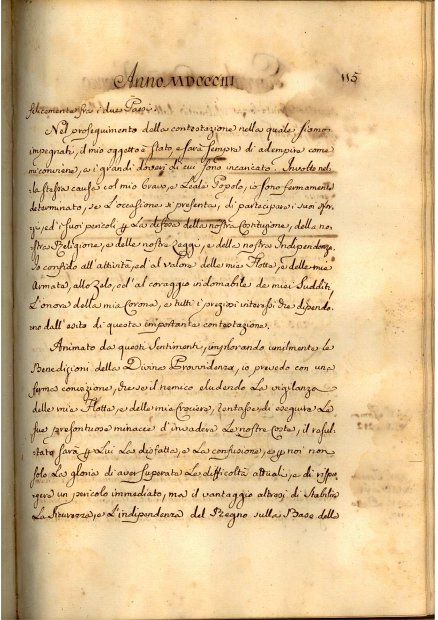 Anno MDCCCIII
115
felicemente fra i due Paesi.
Nel proseguimento della contestazione nella quale siamo
impegnati, il mio oggetto è stato, e sarà sempre di adempire come
mi conviene, a i grandi doveri di cui sono incaricato. Involto nel-
la stessa causa col mio bravo, e Leale Popolo, io sono fermamente
determinato, se l'occasione si presenta, di partecipare i suoi sfor-
zi, ed i suoi pericoli per La difesa della nostra Costituzione, della no-
stra Religione, e delle nostre Leggi, e della nostra Indipendenza.
Io confido all'attività, ed al valore delle mie Flotte, e delle mie
Armate, allo zelo, ed al coraggio indomabile de miei Sudditi,
L'onore della mia Corona, e tutti i preziosi interessi che dipendo-
no dall'esito di questa importante contestazione.
Animato da questi Sentimenti, implorando umilmente le
Benedizioni della Divina Provvidenza, io prevedo con una
ferma convinzione, che se il nemico eludendo La vigilanza
delle mie Flotte, e delle mie Crociere, tentasse di eseguire Le
sue presontuose minacce d'invadere Le nostre coste, il resul-
tato sarà per Lui La disfatta, e La confusione, e per noi non
solo La gloria di aver superate Le difficoltà attuali, e di rispin-
gere un pericolo immediato, ma il vantaggio altresì di stabilire
La Sicurezza, e L'indipendenza del Regno sulla Base delle